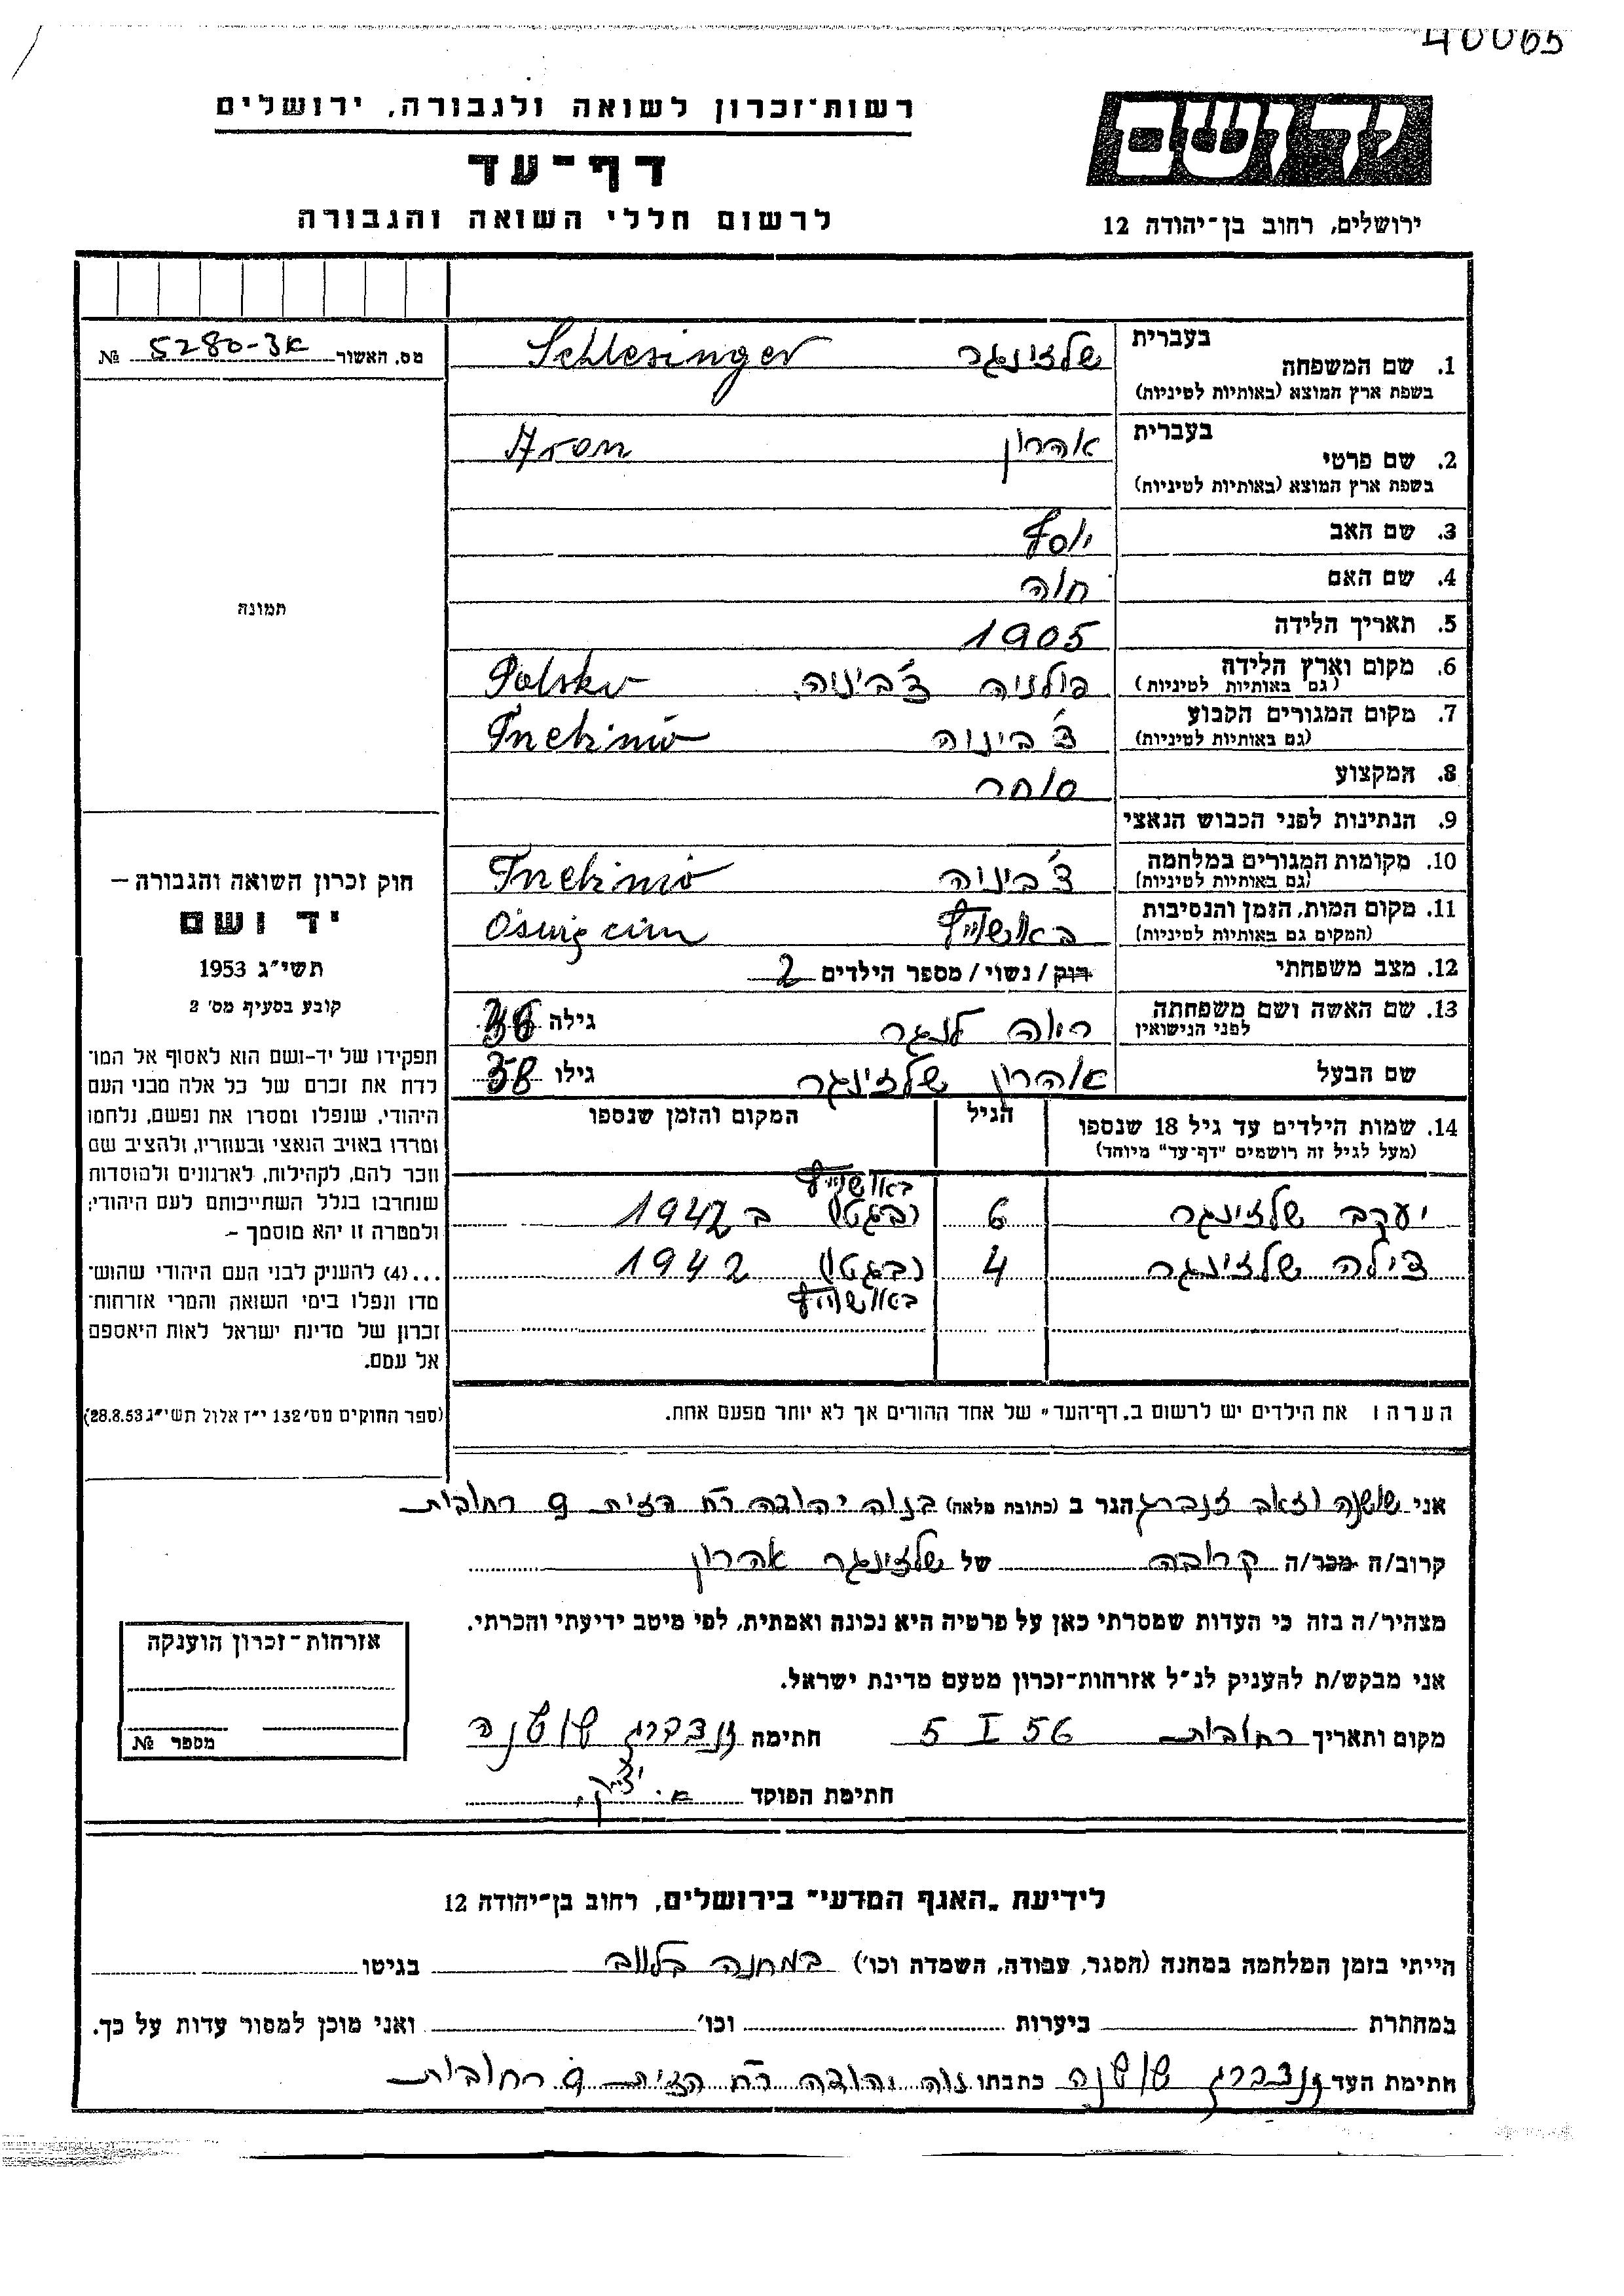 40065
רשות־זכרון לשואה ולגבורה, ירושלים
יד ושם
דף־עד
לרשום חללי השואה והגבורה
ירושלים, רחוב בן־יהודה 12
מס. האשור 5280-3א №
1. שם המשפחה
בעברית שלזינגר Schlesinger
בשפת ארץ המוצא (באותיות לטיניות)
2. שם פרטי
בעברית אהרון Aron
בשפת ארץ המוצא (באותיות לטיניות)
3. שם האב יוסף
4. שם האם חוה
5. תאריך הלידה 1905
6. מקום וארץ הלידה פולניה צ'בינוה Polska
(גם באותיות לטיניות)
7. מקום המגורים הקבוע צ'בינוה
(גם באותיות לטיניות)
8. המקצוע סוחר
9. הנתינות לפני הכבוש הנאצי
10. מקומות המגורים במלחמה צ'בינוה
(גם באותיות לטיניות)
11. מקום המות, הזמן והנסיבות באושויץ Oświęcim
(המקום גם באותיות לטיניות)
12. מצב משפחתי רוק / נשוי / מספר הילדים 2
13. שם האשה ושם משפחתה לנגר גילה 36
לפני הנישואין
שם הבעל אהרון שלזינגר גילו 38
14. שמות הילדים עד גיל 18 שנספו הגיל המקום והזמן שנספו
(מעל לגיל זה רושמים "דף־עד" מיוחד)
באושויץ
יעקב שלזינגר 6 (בגטו) ב 1942
צילה שלזינגר 4 (בגטו) 1942
באושויץ
הערה: את הילדים יש לרשום ב„דף־העד" של אחד ההורים אך לא יותר מפעם אחת.
תמונה
חוק זכרון השואה והגבורה —
יד ושם
תשי״ג 1953
קובע בסעיף מס׳ 2
תפקידו של יד-ושם הוא לאסוף אל המו־
לדת את זכרם של כל אלה מבני העם
היהודי, שנפלו ומסרו את נפשם, נלחמו
ומרדו באויב הנאצי ובעוזריו, ולהציב שם
וזכר להם, לקהילות, לארגונים ולמוסדות
שנחרבו בגלל השתייכותם לעם היהודי;
ולמטרה זו יהא מוסמך —
...(4) להעניק לבני העם היהודי שהוש־
מדו ונפלו בימי השואה והמרי אזרחות־
זכרון של מדינת ישראל לאות היאספם
אל עמם.
(ספר החוקים מס׳ 132 י״ז אלול תשי״ג 28.8.53)
אני שושנה זנברג הגר ב (כתובת מלאה) בנוה יהודה רח הזית 9 רחובות
קרוב/ה מכר/ה קרובה של שלזינגר אהרון
מצהיר/ה בזה כי העדות שמסרתי כאן על פרטיה היא נכונה ואמתית, לפי מיטב ידיעתי והכרתי.
אני מבקש/ת להעניק לנ״ל אזרחות־זכרון מטעם מדינת ישראל.
מקום ותאריך רחובות 5 I 56 חתימה שושנה
חתימת הפוקד
אזרחות־זכרון הוענקה
מספר №
לידיעת „האגף המדעי" בירושלים, רחוב בן־יהודה 12
הייתי בזמן המלחמה במחנה (הסגר, עבודה, השמדה וכו׳) במחנה בגיטו
במחתרת ביערות וכו׳ ואני מוכן למסור עדות על כך.
חתימת העד שושנה כתבתו נוה יהודה רח הזית 9 רחובות